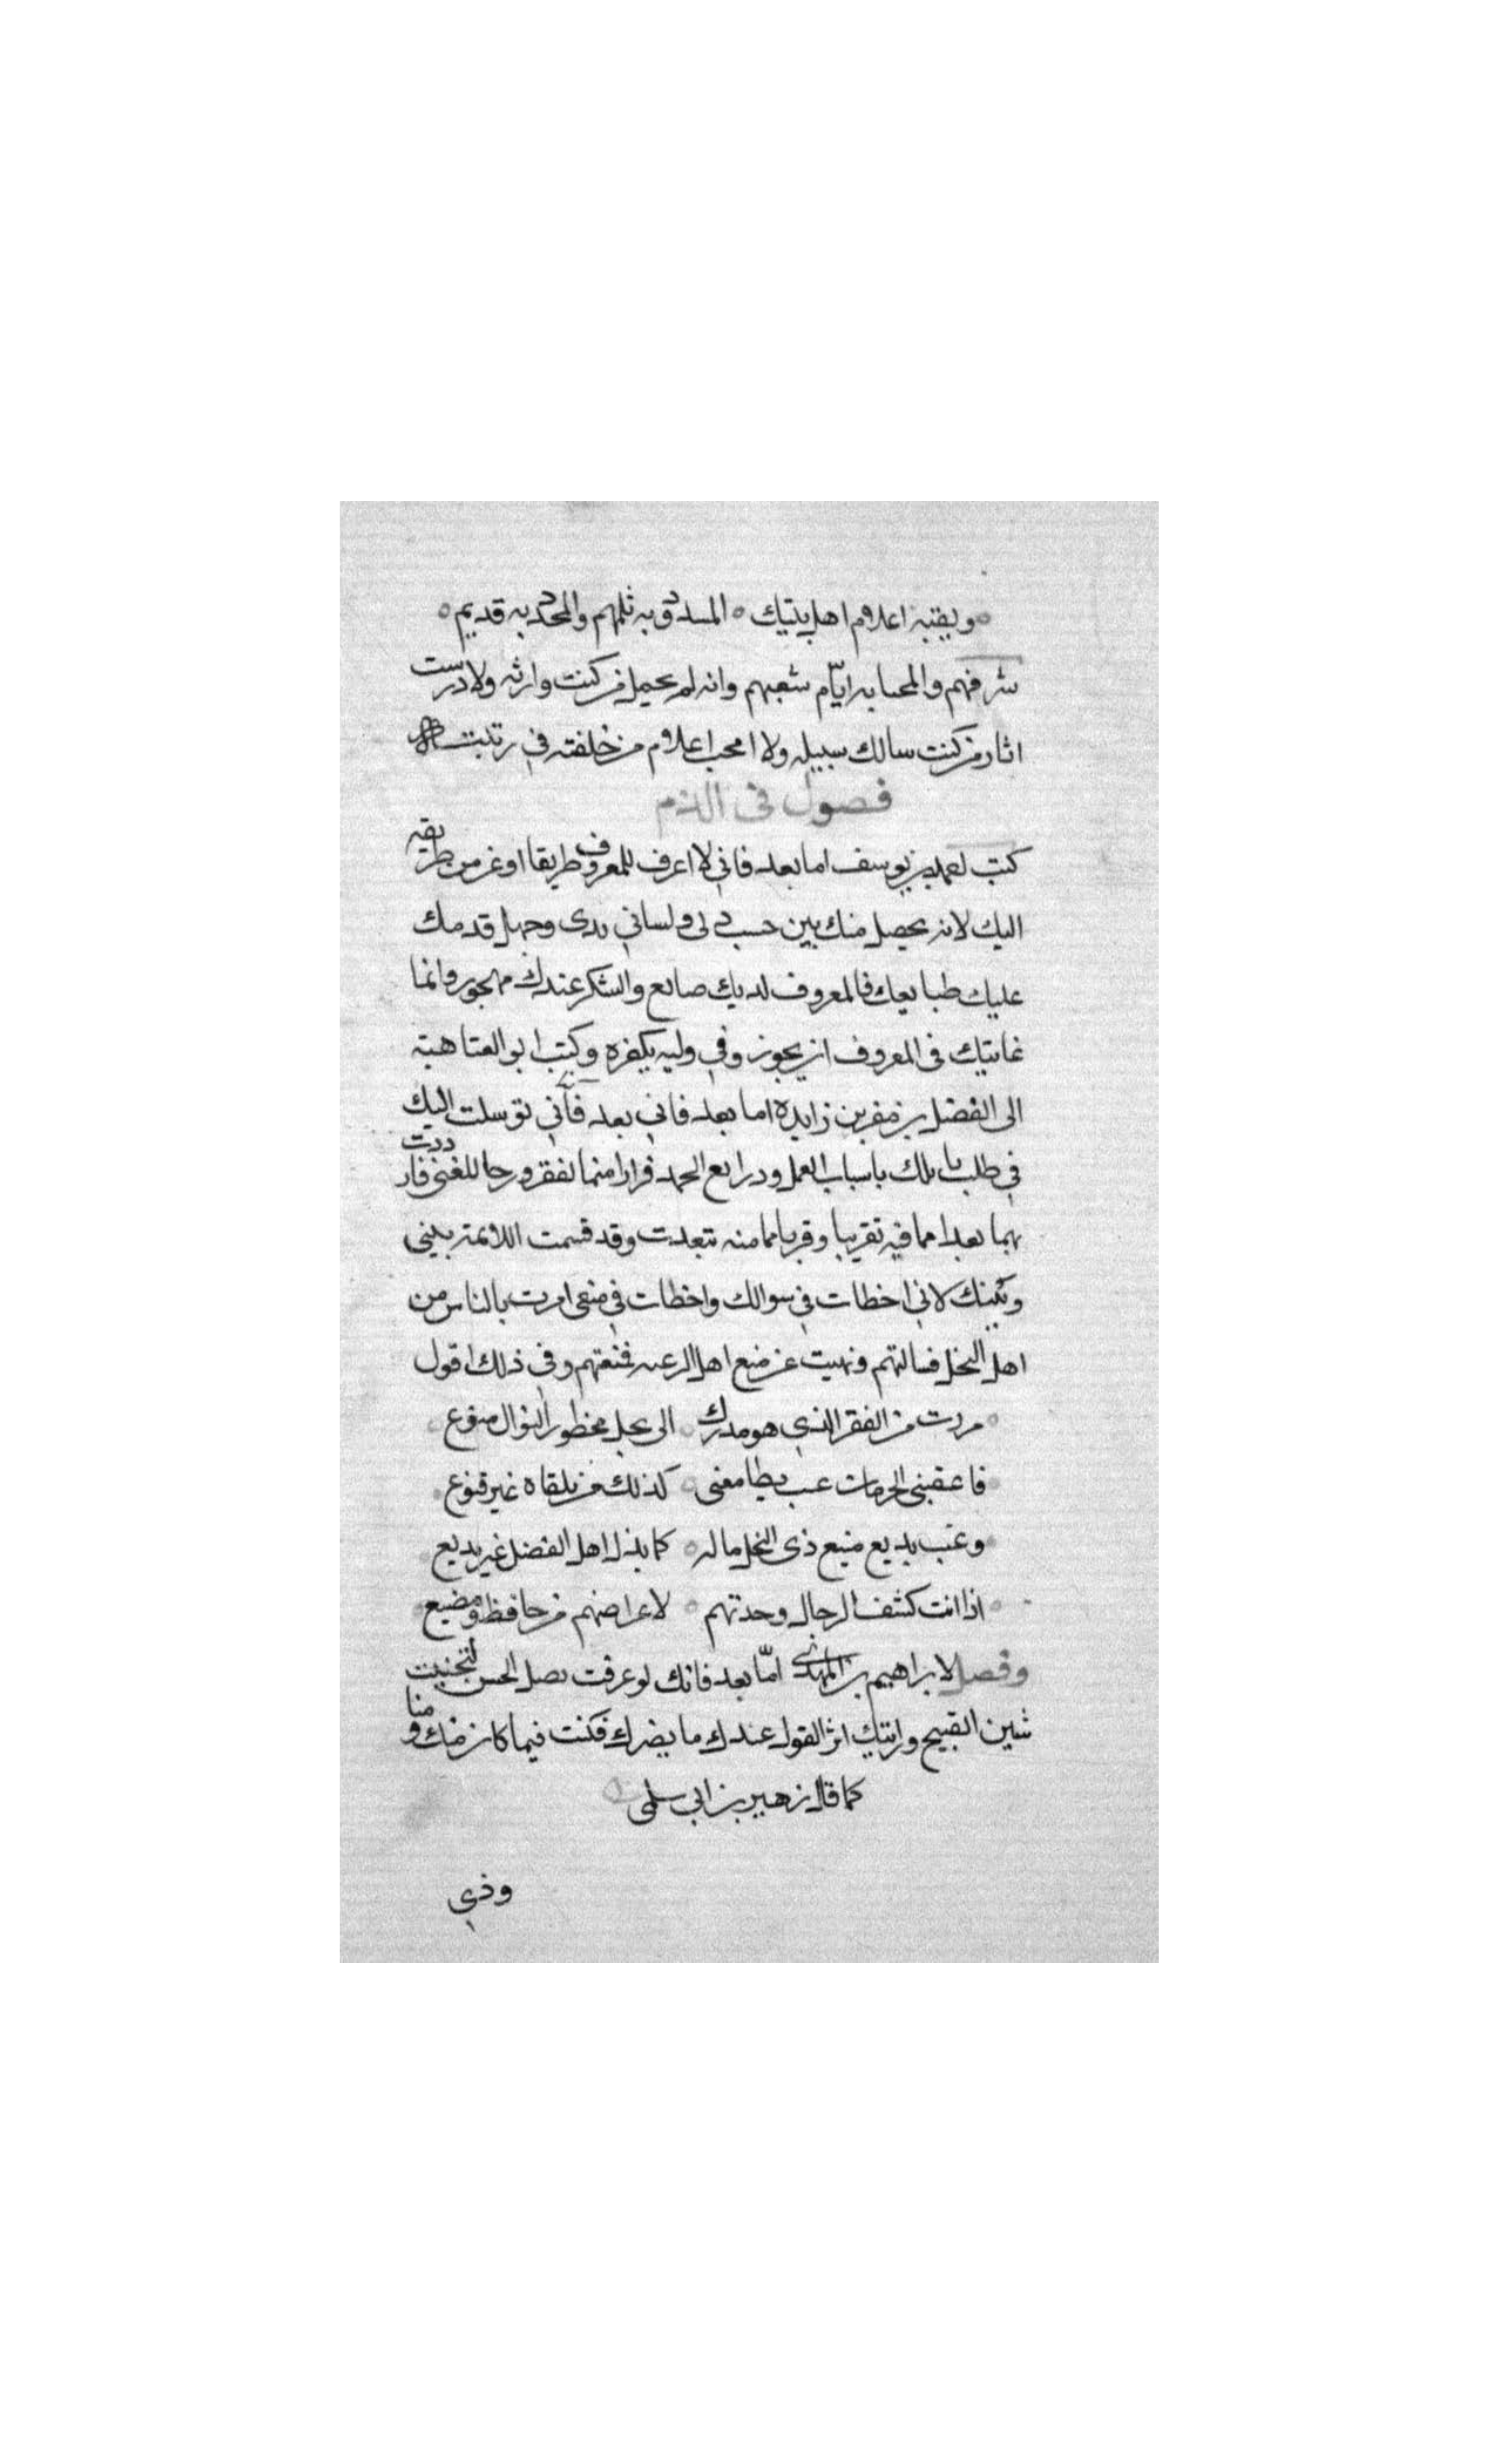 وبقية اعلام اهل بيتك ه المسدود به ثلمهم والمجدد به قديم ه
شرفهم والمحيا به ايّام شعبهم وانه لم يخمل من كنت وارثه ولا درست
اثار من كنت سالك سبيله ولا امحب اعلام من خلفته في رتبت
فصول في الذم
كتب لعمه بن يوسف اما بعد فاني لا اعرف للمعروف طريقا اوغر من طريقه
اليك لانه يحصل منك بين حسب دني ولساني بدى وجهل قد ملك
عليك طبايعك فالمعروف لديك ضايع والشكر عندك مهجور وانما
غايتيك في المعروف ان يجوز وفي وليه يكفره وكتب ابو العتاهية
الى الفضل بن زايدة اما بعد فاني بعد فأني توسلت اليك
في طلب نايلك باسباب العمل ودرايع الحمد فرارا منما لفقر ورجا للغنى فازددت
بهما بعدا مما فيه تقريبا وقربا مما منه تتبعدت وقد قسمت اللائمة بيني
وبينك لاني اخطات في سوالك واخطات في منعي امرت بالناس من
اهل البخل فسالتهم ونهيت عن منع اهل الرغبه فمنعتهم وفي ذلك اقول
ه مررت من الفقر الذي هو مدركى ه الى بخل محظور النوال منوع
ه فاعقبني الحرمات عب يطا معنى ه كذلك من يلقاه غير قنوع
ه وغب بديع منيع ذي البخل ماله ه كما بذل اهل الفضل غير بديع
ه اذا انت كشف الرجال وجدتهم ه لاعراضهم من حافظ ومضيع
وفصل لابراهيم بن المهدى امّا بعد فانك لو عرفت فصل الحسن لتجنبت
شين القبيح ورايتك اثر القول عندك ما يضرك فكنت فيما كان منك ومنا
كما قال زهير بن ابي سلمى
وذي